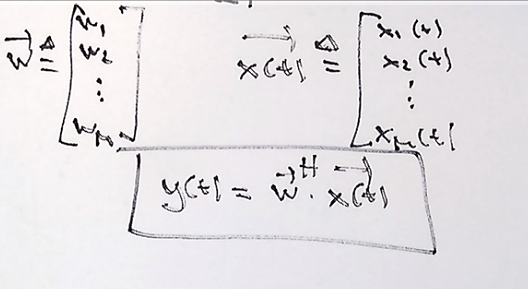 w⃗ ≜ [w₁ w₂ ⋮ w_M]  x(t)⃗ ≜ [x₁(t) x₂(t) ⋮ x_M(t)]
y(t) = w⃗ᴴ · x(t)⃗